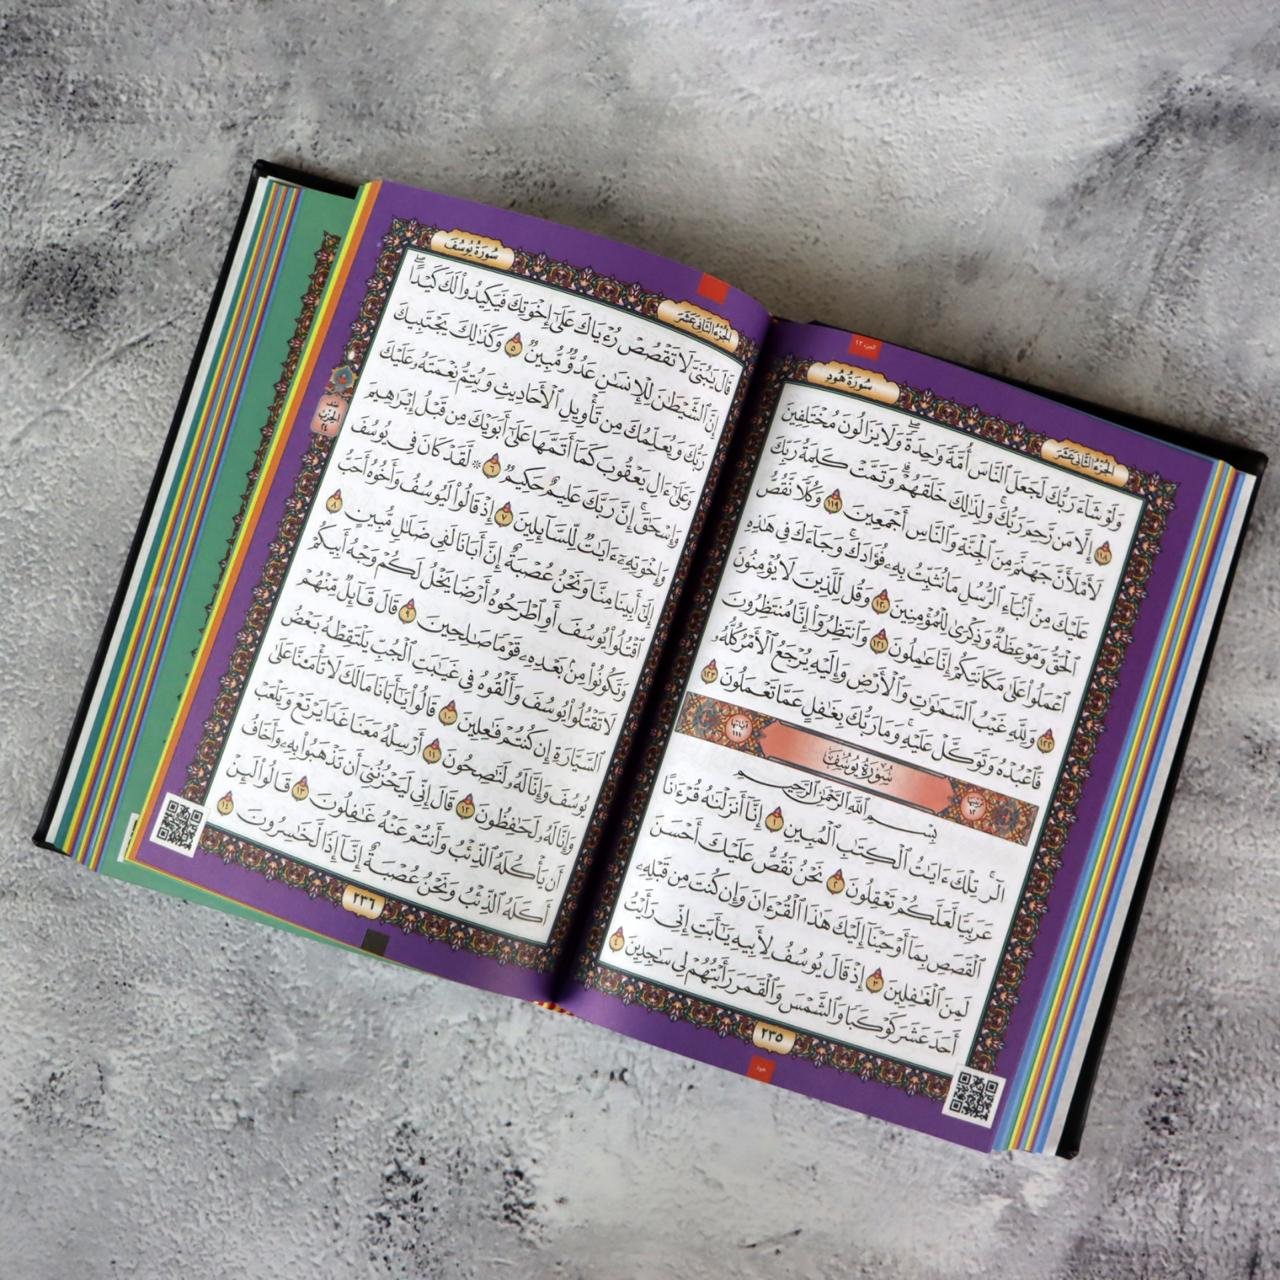 الجزء ١٢
الجزء الثاني عشر
سورة هود
وَلَوْ شَآءَ رَبُّكَ لَجَعَلَ ٱلنَّاسَ أُمَّةً وَٰحِدَةً ۖ وَلَا يَزَالُونَ مُخْتَلِفِينَ
١١٨ إِلَّا مَن رَّحِمَ رَبُّكَ ۚ وَلِذَٰلِكَ خَلَقَهُمْ ۗ وَتَمَّتْ كَلِمَةُ رَبِّكَ
لَأَمْلَأَنَّ جَهَنَّمَ مِنَ ٱلْجِنَّةِ وَٱلنَّاسِ أَجْمَعِينَ ١١٩ وَكُلًّا نَّقُصُّ
عَلَيْكَ مِنْ أَنۢبَآءِ ٱلرُّسُلِ مَا نُثَبِّتُ بِهِۦ فُؤَادَكَ ۚ وَجَآءَكَ فِى هَٰذِهِ
ٱلْحَقُّ وَمَوْعِظَةٌ وَذِكْرَىٰ لِلْمُؤْمِنِينَ ١٢٠ وَقُل لِّلَّذِينَ لَا يُؤْمِنُونَ
ٱعْمَلُوا۟ عَلَىٰ مَكَانَتِكُمْ إِنَّا عَٰمِلُونَ ١٢١ وَٱنتَظِرُوٓا۟ إِنَّا مُنتَظِرُونَ
١٢٢ وَلِلَّهِ غَيْبُ ٱلسَّمَٰوَٰتِ وَٱلْأَرْضِ وَإِلَيْهِ يُرْجَعُ ٱلْأَمْرُ كُلُّهُۥ
فَٱعْبُدْهُ وَتَوَكَّلْ عَلَيْهِ ۚ وَمَا رَبُّكَ بِغَٰفِلٍ عَمَّا تَعْمَلُونَ ١٢٣
ترتيبها ١٢ سُورَةُ يُوسُفَ آياتها ١١١
بِسْمِ ٱللَّهِ ٱلرَّحْمَٰنِ ٱلرَّحِيمِ
الٓر ۚ تِلْكَ ءَايَٰتُ ٱلْكِتَٰبِ ٱلْمُبِينِ ١ إِنَّآ أَنزَلْنَٰهُ قُرْءَٰنًا
عَرَبِيًّا لَّعَلَّكُمْ تَعْقِلُونَ ٢ نَحْنُ نَقُصُّ عَلَيْكَ أَحْسَنَ
ٱلْقَصَصِ بِمَآ أَوْحَيْنَآ إِلَيْكَ هَٰذَا ٱلْقُرْءَانَ وَإِن كُنتَ مِن قَبْلِهِۦ
لَمِنَ ٱلْغَٰفِلِينَ ٣ إِذْ قَالَ يُوسُفُ لِأَبِيهِ يَٰٓأَبَتِ إِنِّى رَأَيْتُ
أَحَدَ عَشَرَ كَوْكَبًا وَٱلشَّمْسَ وَٱلْقَمَرَ رَأَيْتُهُمْ لِى سَٰجِدِينَ ٤
٢٣٥
هود
الجزء الثاني عشر
سورة يوسف
قَالَ يَٰبُنَىَّ لَا تَقْصُصْ رُءْيَاكَ عَلَىٰٓ إِخْوَتِكَ فَيَكِيدُوا۟ لَكَ كَيْدًا ۖ
إِنَّ ٱلشَّيْطَٰنَ لِلْإِنسَٰنِ عَدُوٌّ مُّبِينٌ ٥ وَكَذَٰلِكَ يَجْتَبِيكَ
رَبُّكَ وَيُعَلِّمُكَ مِن تَأْوِيلِ ٱلْأَحَادِيثِ وَيُتِمُّ نِعْمَتَهُۥ عَلَيْكَ
وَعَلَىٰٓ ءَالِ يَعْقُوبَ كَمَآ أَتَمَّهَا عَلَىٰٓ أَبَوَيْكَ مِن قَبْلُ إِبْرَٰهِيمَ
وَإِسْحَٰقَ ۚ إِنَّ رَبَّكَ عَلِيمٌ حَكِيمٌ ٦ ۞ لَّقَدْ كَانَ فِى يُوسُفَ
وَإِخْوَتِهِۦٓ ءَايَٰتٌ لِّلسَّآئِلِينَ ٧ إِذْ قَالُوا۟ لَيُوسُفُ وَأَخُوهُ أَحَبُّ
إِلَىٰٓ أَبِينَا مِنَّا وَنَحْنُ عُصْبَةٌ إِنَّ أَبَانَا لَفِى ضَلَٰلٍ مُّبِينٍ ٨
ٱقْتُلُوا۟ يُوسُفَ أَوِ ٱطْرَحُوهُ أَرْضًا يَخْلُ لَكُمْ وَجْهُ أَبِيكُمْ
وَتَكُونُوا۟ مِنۢ بَعْدِهِۦ قَوْمًا صَٰلِحِينَ ٩ قَالَ قَآئِلٌ مِّنْهُمْ
لَا تَقْتُلُوا۟ يُوسُفَ وَأَلْقُوهُ فِى غَيَٰبَتِ ٱلْجُبِّ يَلْتَقِطْهُ بَعْضُ
ٱلسَّيَّارَةِ إِن كُنتُمْ فَٰعِلِينَ ١٠ قَالُوا۟ يَٰٓأَبَانَا مَا لَكَ لَا تَأْمَ۫نَّا عَلَىٰ
يُوسُفَ وَإِنَّا لَهُۥ لَنَٰصِحُونَ ١١ أَرْسِلْهُ مَعَنَا غَدًا يَرْتَعْ وَيَلْعَبْ
وَإِنَّا لَهُۥ لَحَٰفِظُونَ ١٢ قَالَ إِنِّى لَيَحْزُنُنِىٓ أَن تَذْهَبُوا۟ بِهِۦ وَأَخَافُ
أَن يَأْكُلَهُ ٱلذِّئْبُ وَأَنتُمْ عَنْهُ غَٰفِلُونَ ١٣ قَالُوا۟ لَئِنْ
أَكَلَهُ ٱلذِّئْبُ وَنَحْنُ عُصْبَةٌ إِنَّآ إِذًا لَّخَٰسِرُونَ ١٤
الحزب
٢٤
٢٣٦